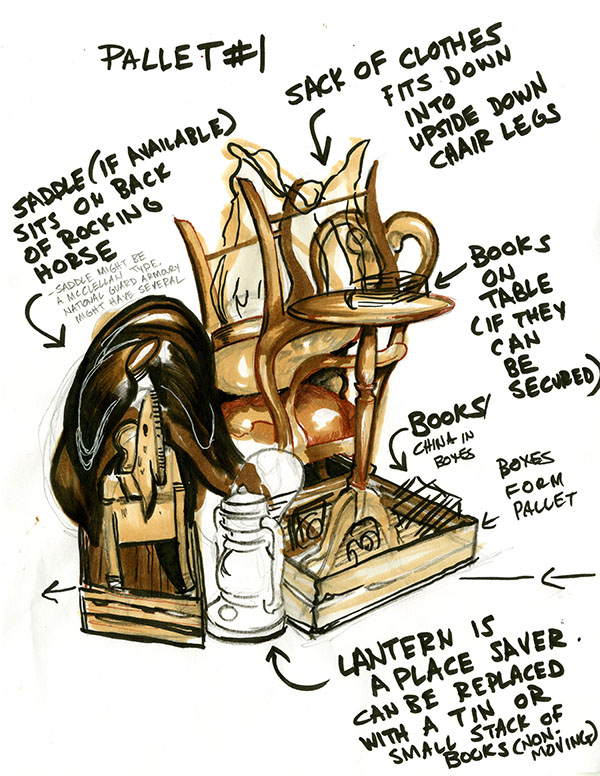 PALLET #1
SACK OF CLOTHES
FITS DOWN
INTO
UPSIDE DOWN
CHAIR LEGS
SADDLE (IF AVAILABLE)
SITS ON BACK
OF ROCKING
HORSE
-SADDLE MIGHT BE
A MCCLELLAN TYPE.
NATIONAL GUARD ARMOURY
MIGHT HAVE SEVERAL
BOOKS
ON
TABLE
(IF THEY
CAN
BE
SECURED)
BOOKS/
CHINA IN
BOXES
BOXES
FORM
PALLET
LANTERN IS
A PLACE SAVER.
CAN BE REPLACED
WITH A TIN OR
SMALL STACK OF
BOOKS (NON-
MOVING)